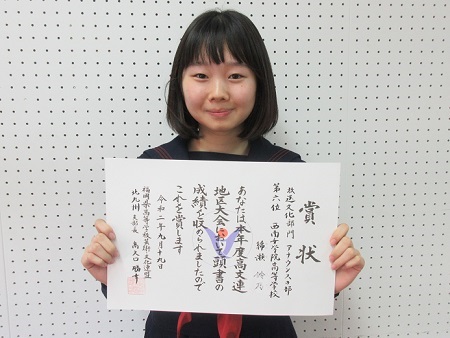 賞状
放送文化部門 アナウンス部
第六位 西南女学院高等学校
あなたは本年度高文連
地区大会において頭書の
成績を収められましたので
これを賞します
令和二年九月十九日
福岡県高等学校芸術・文化連盟
北九州支部長